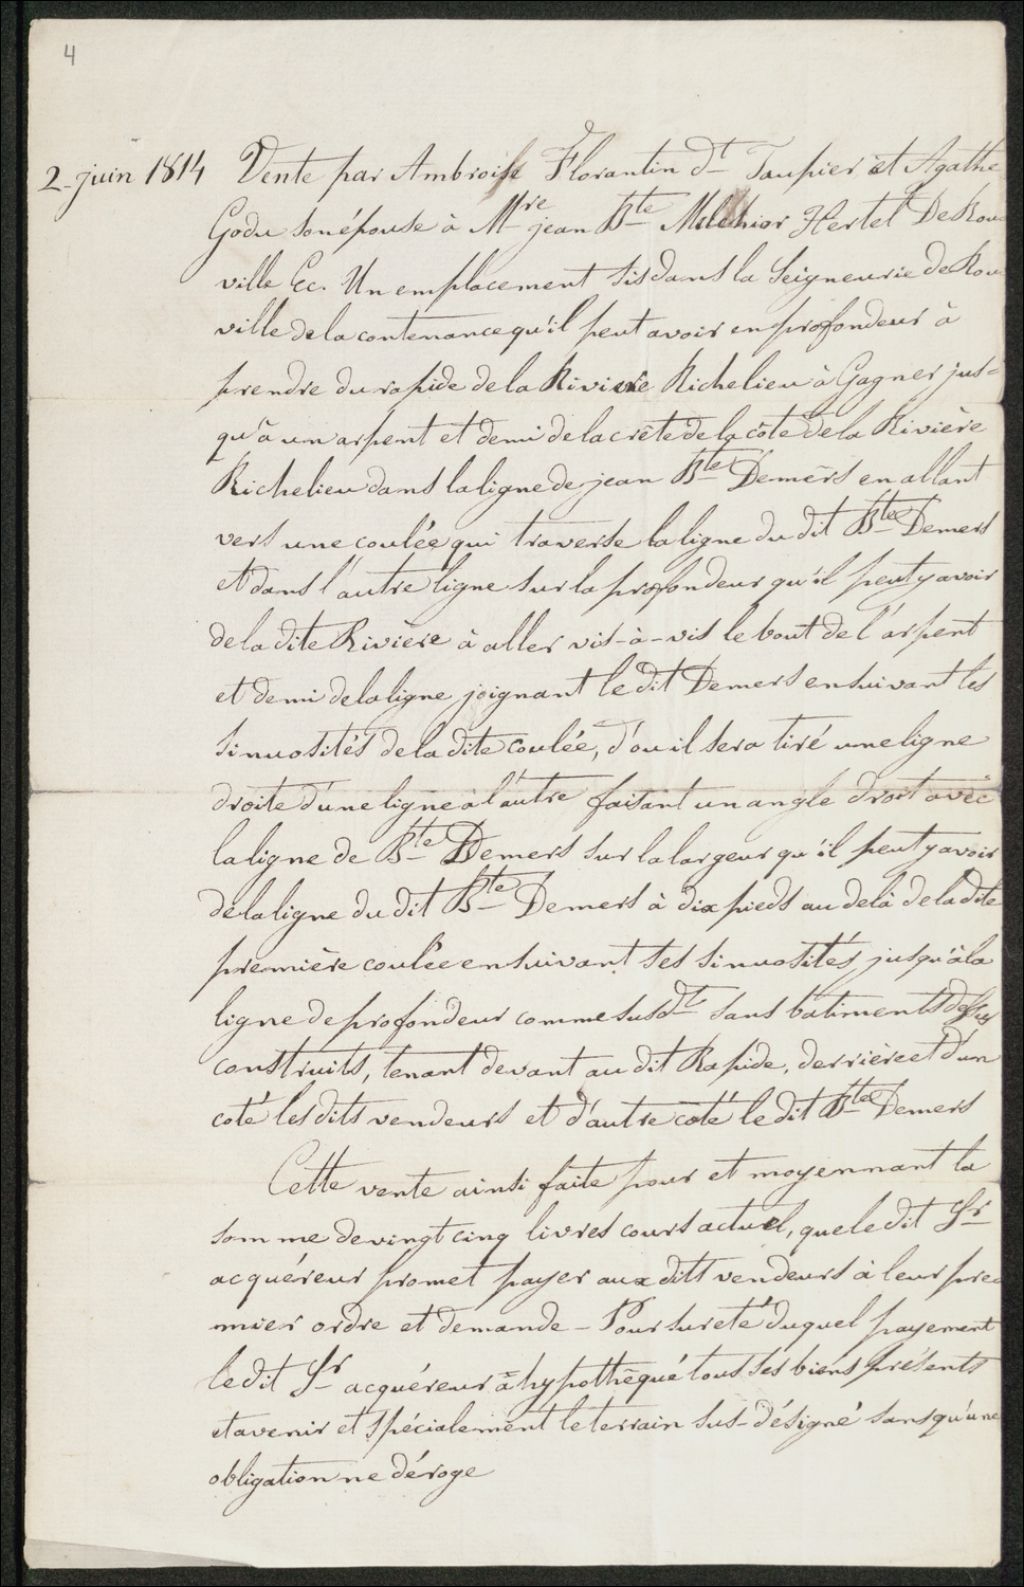 4
2 - juin 1814 Vente par Ambroise Florantin dt Taupier et Agathe
Godu son épouse à Mre jean Bte Melchior Hertel De Rou-
ville Ec. Un emplacement sis dans la Seigneurie de Rou-
ville de la contenance qu'il peut avoir en profondeur à
prendre du rapide de la Rivière Richelieu à Gagner jus=
qu'à un arpent et demi de la crête de la côte de la Rivière
Richelieu dans la ligne de jean Bte Demers en allant
vers une coulée qui traverse la ligne du dit Bte Demers
et dans l'autre ligne sur la profondeur qu'il peut y avoir
de la dite Rivière à aller vis-à-vis le bout de l'arpent
et demi de la ligne joignant le dit Demers en suivant les
sinuosités de la dite coulée, d'ou il sera tiré une ligne
droite d'une ligne à l'autre faisant un angle droit avec
la ligne de Bte Demers sur la largeur qu'il peut y avoir
de la ligne du dit Bte Demers à dix pieds au delà de la dite
première coulée en suivant ses sinuosités jusqu'à la
ligne de profondeur comme susdt sans bâtiments dessus
construits, tenant devant au dit Rapide, derrière et d'un
coté les dits vendeurs et d'autre côté le dit Bte Demers
Cette vente ainsi faite pour et moyennant la
somme de vingt cinq livres cours actuel, que le dit Sr
acquéreur promet payer aux dits vendeurs à leur pre-
mier ordre et demande - Pour sureté duquel payement
le dit Sr acquéreur à hypothèqué tous ses biens présents
et avenir et spécialement le terrain sus-désigné sans qu'une
obligation ne déroge